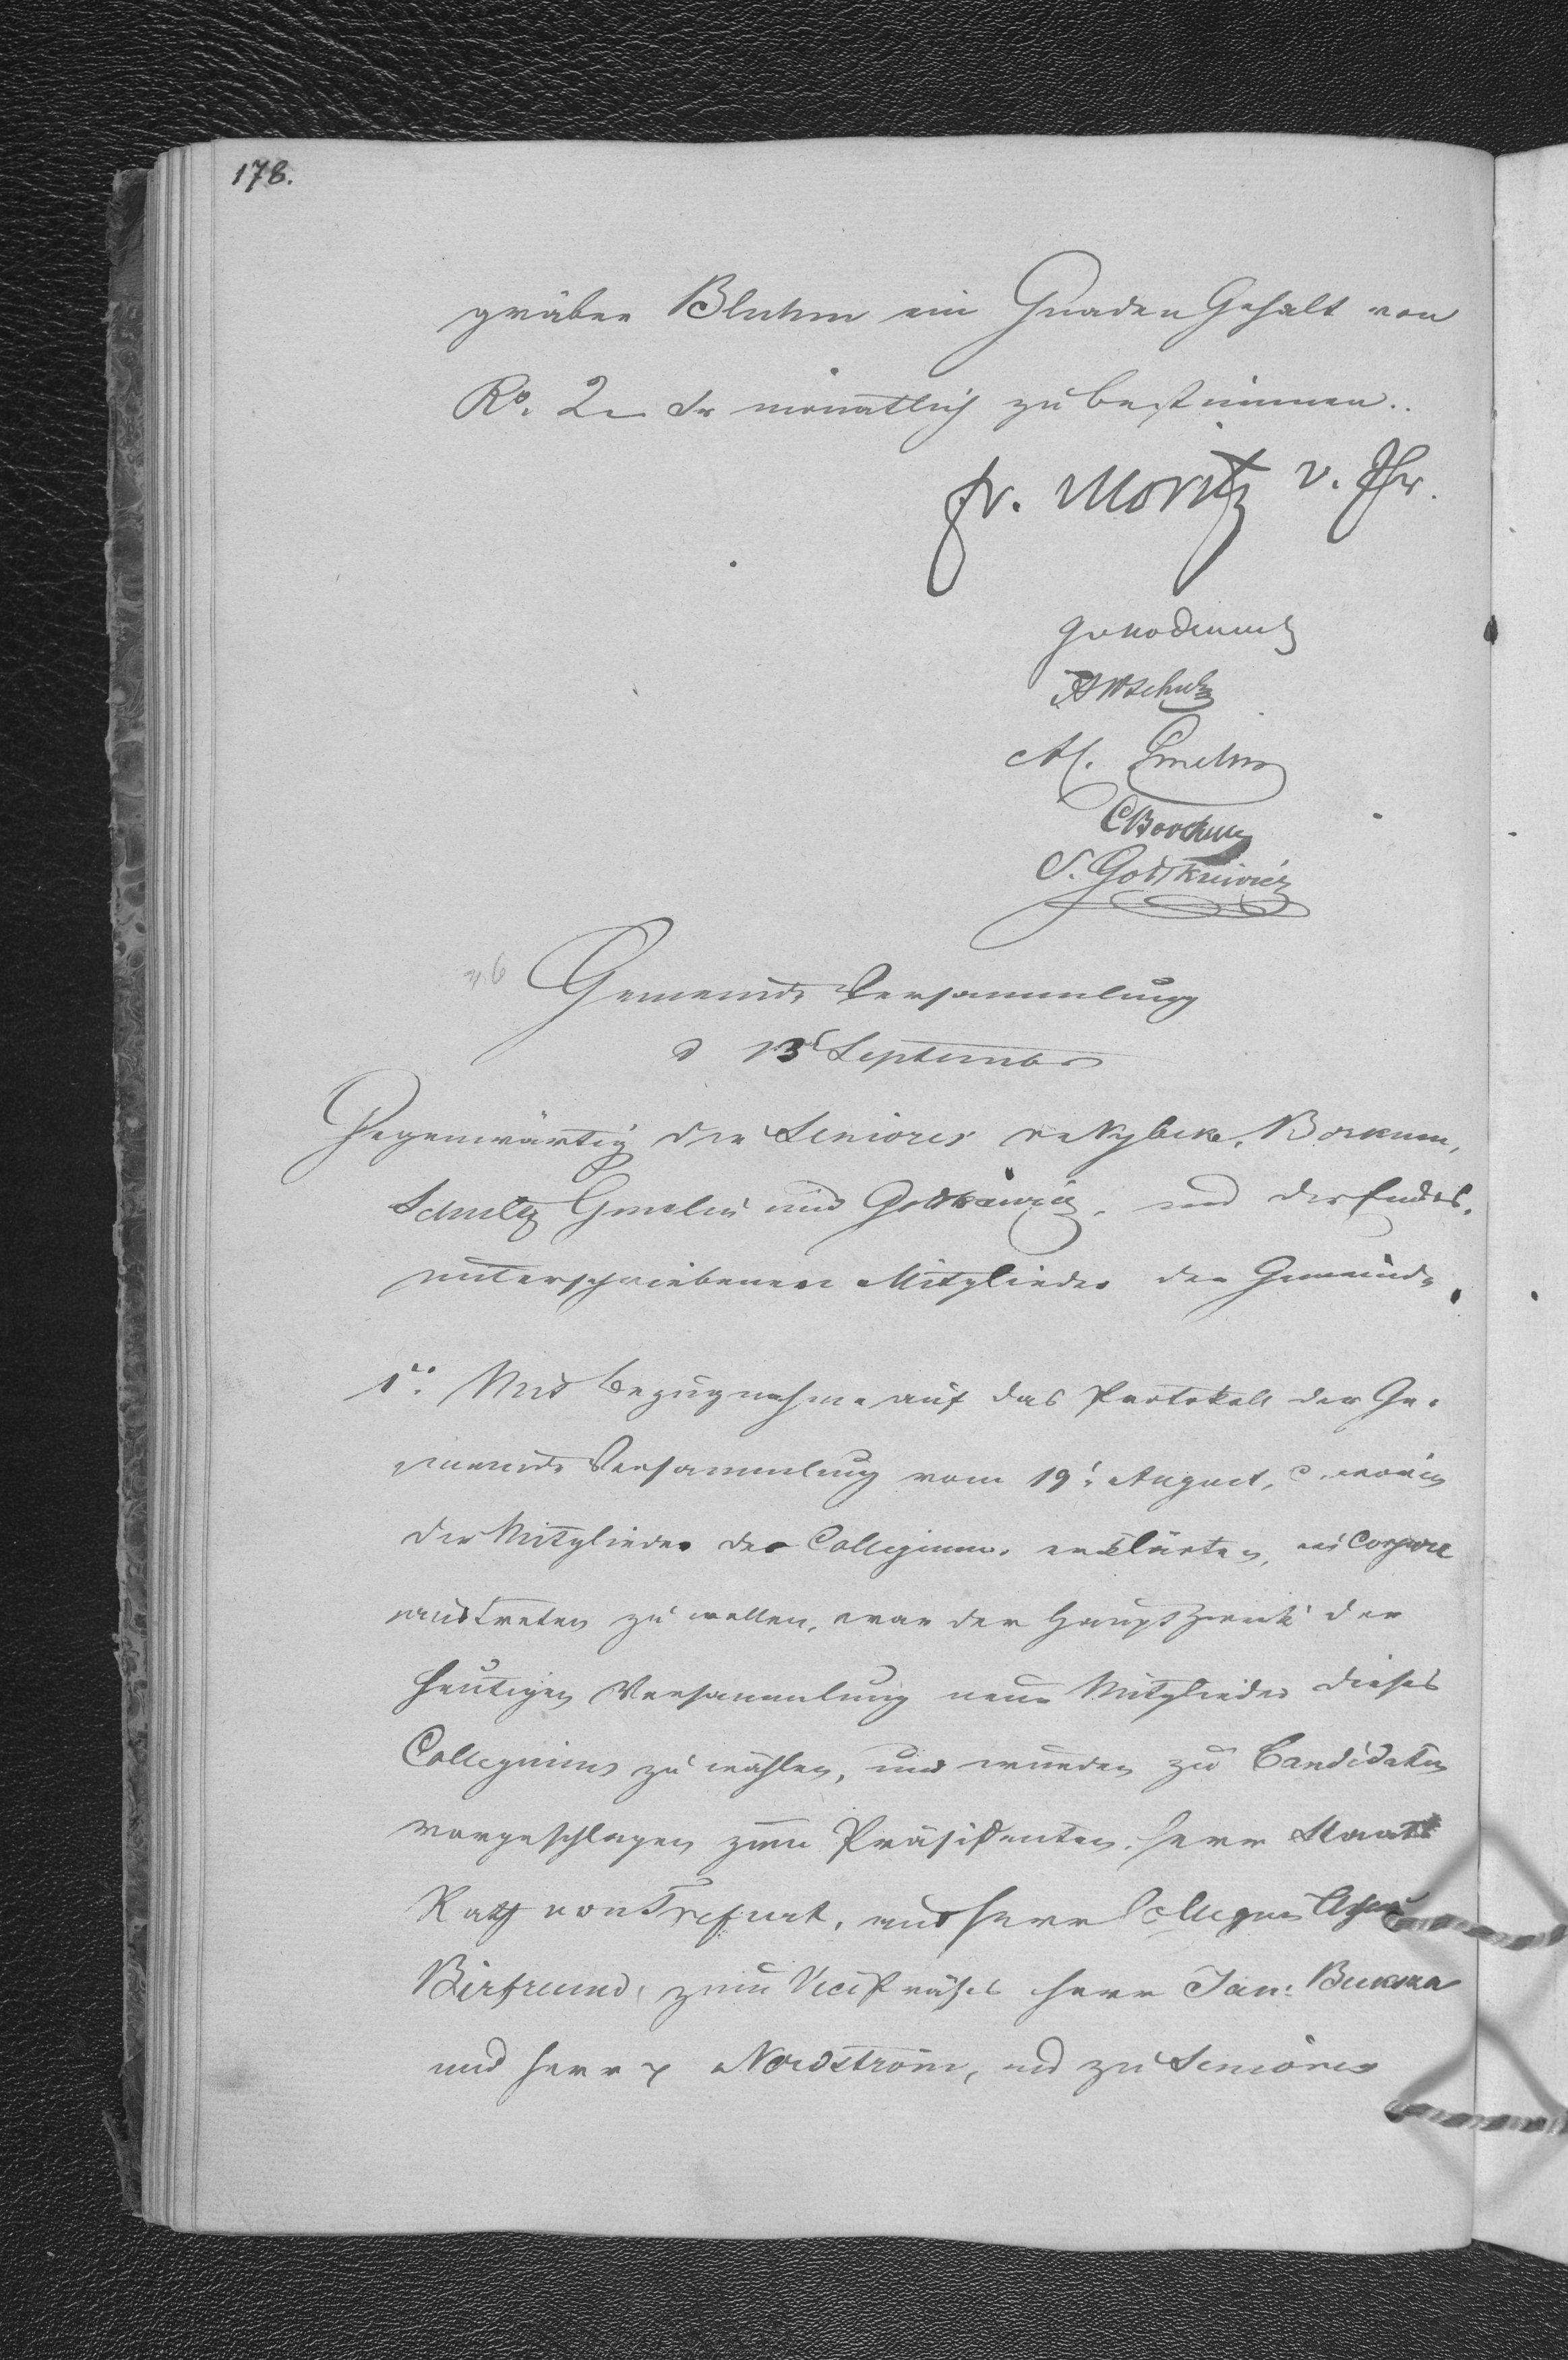 178.
gräber Bluhm ein Gnaden Gehalt von
Ro. 2 Sr monatlich zu bestimmen.
fr. Moritz v. Hr.
A W Schultz
Al. Gmelin
C Borckum
S. Gottkiewicz
Gemeinde Versammlung
d 13t September
Gegenwärtig die Seniores Borkum,
Schultz Gmelin und Gottkiewicz, und die Endes
unterschriebenen Mitglieder der Gemeinde.
1o. Mit Bezugnahme auf das Protokoll der Ge-
meinde Versammlung vom 19t. August, c. worin
die Mitglieder des Collegiums erklärten, in Corpore
austreten zu wollen, war der Hauptzweck der
heutigen Versammlung neue Mitglieder dieses
Collegiums zu wählen, und wurden zu Candidaten
vorgeschlagen zum Präsidenten, Herr Staats
Rath von Trefurt, und Herr Collegien Assess
Birfreund, zum Vice Präses Herr Jan:
und Herr Nordström, und zu Seniores